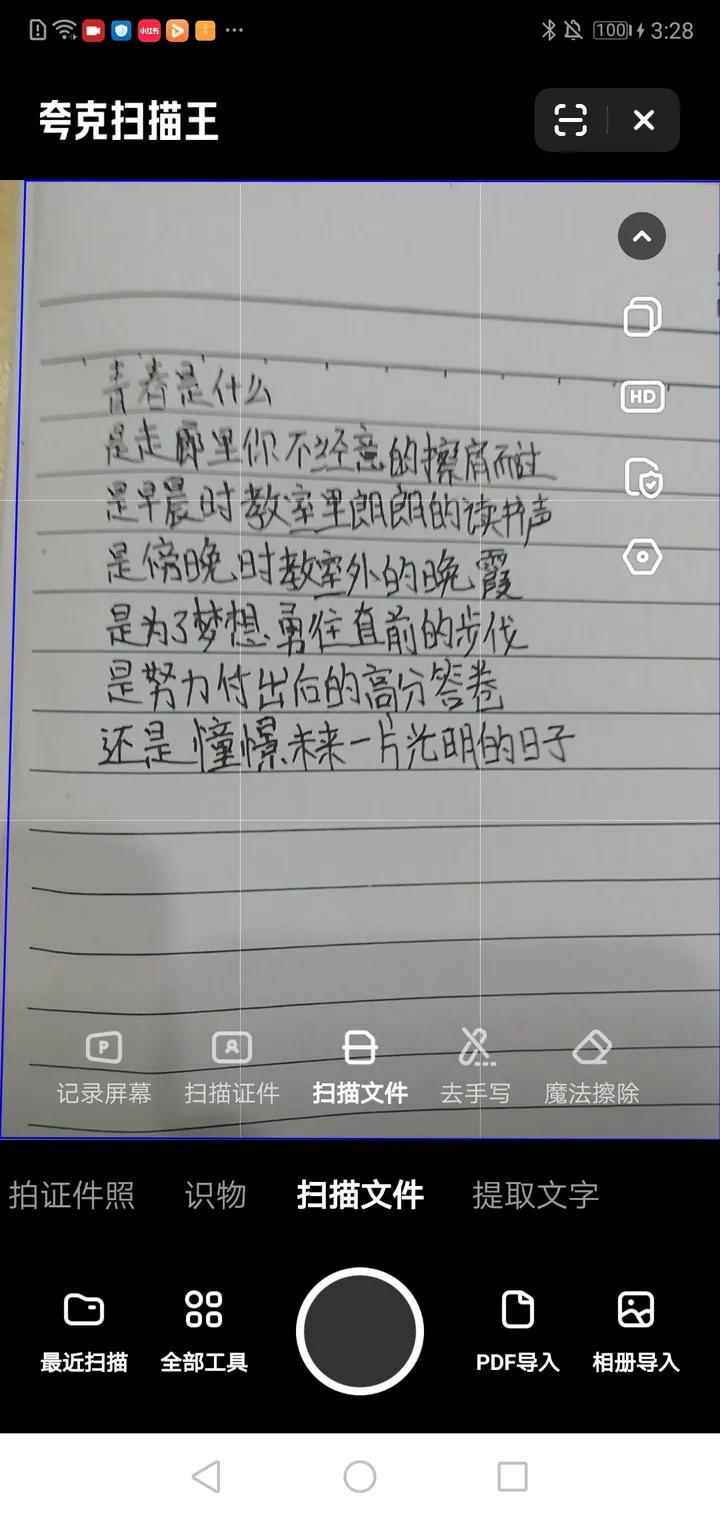 小红书
100 3:28
夸克扫描王
HD
青春是什么
是走廊里你不经意的擦肩而过
是早晨时教室里朗朗的读书声
是傍晚时教室外的晚霞
是为了梦想勇往直前的步伐
是努力付出后的高分答卷
还是憧憬未来一片光明的日子
P
记录屏幕 扫描证件 扫描文件 去手写 魔法擦除
拍证件照 识物 扫描文件 提取文字
最近扫描 全部工具 PDF导入 相册导入